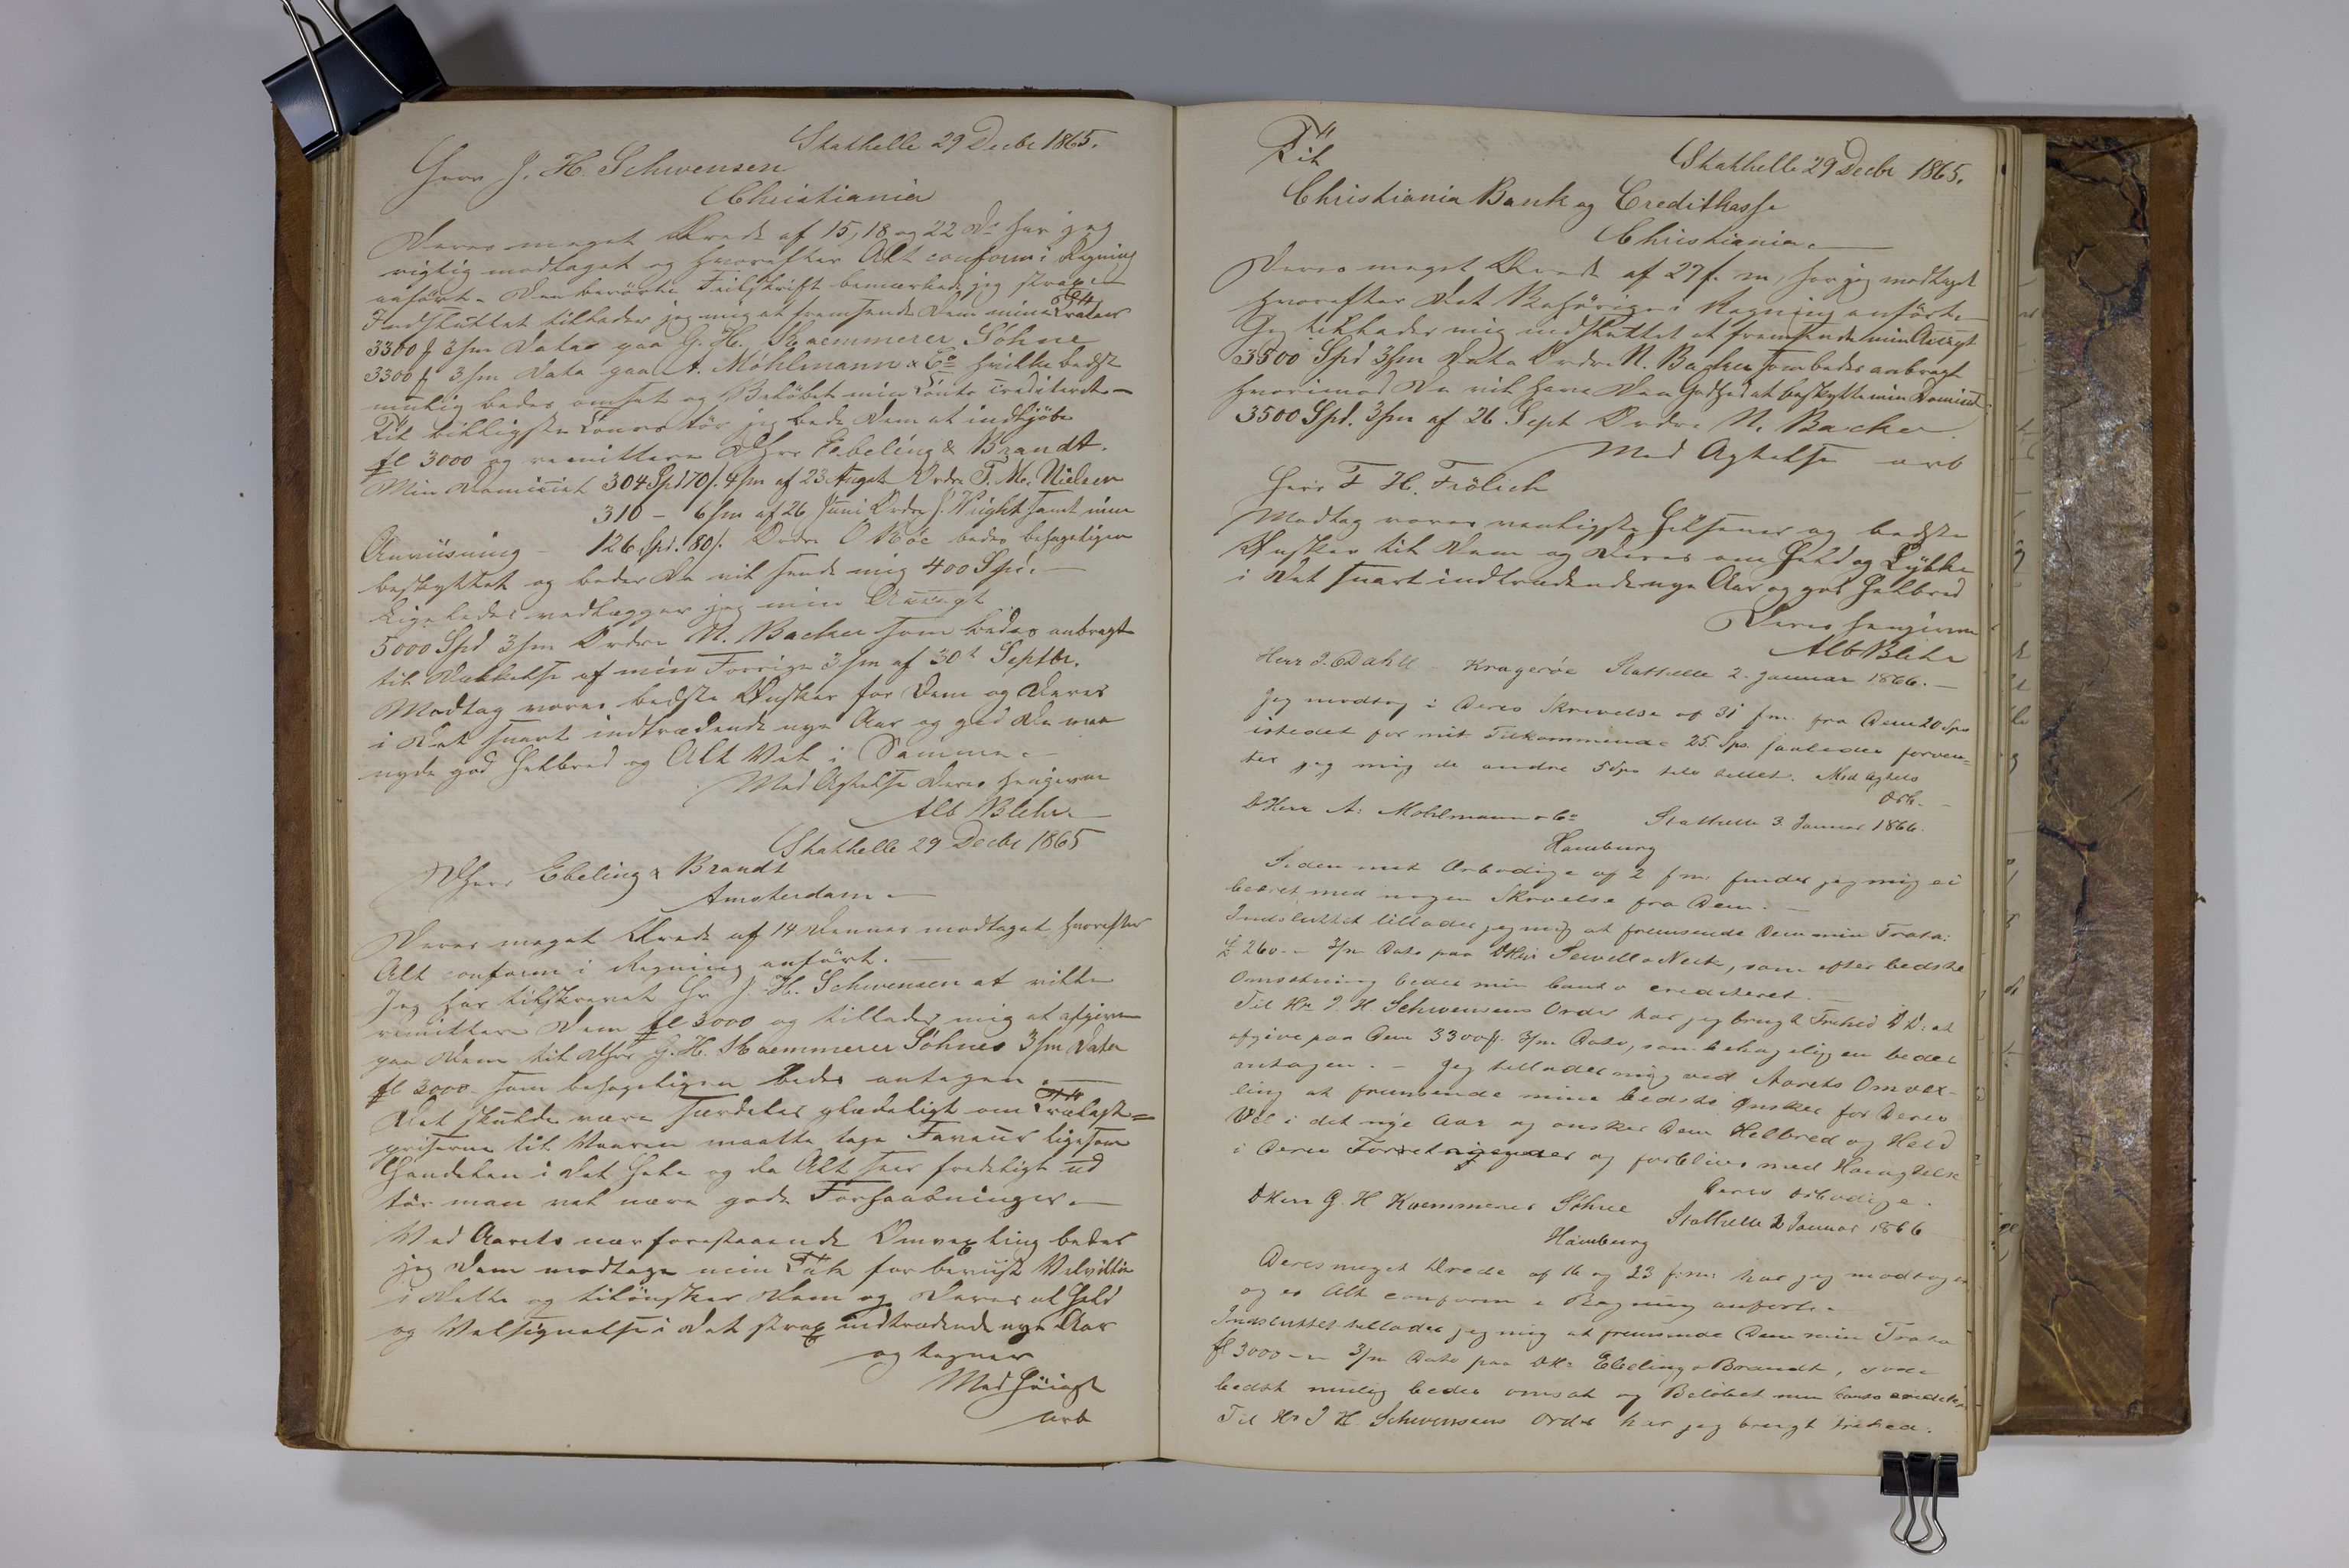 Stathelle 29 Decbr 1865.
Herr J. H. Schwensen
Christiania
Deres meget Ærede af 15, 18 og 22 Ds har jeg
rigtig modtaget og hvorefter Alt conform i Regning
anført. Den berørte Feilskrift bemærkede jeg strax.
Indsluttet tillader jeg mig at fremsende Dem mine Tratter
3300 f 3/m Dato paa G. H. Kaemmerer Söhne
3300 f 3/m Dato paa A. Möhlmann & Co hvilke bedst
mulig bedes omsat og Beløbet min Conto crediteret.
Til billigste Cours tør jeg bede Dem at indkjøbe
fl 3000 og remittere DHrr Ebeling & Brandt.
Min Domicil 304 Spd 70 s. 4/m af 23 August Ordre T. M. Nielsen
310 - 6/m af 26 Juni Ordre J. Wright samt min
Anviisning - 126 Spd. 80 s. Ordre O Röe bedes behageligen
beskyttet og beder De vil sende mig 400 Spd.
Ligeledes vedlægger jeg min Accept
5000 Spd 3/m Ordre N. Backer som bedes anbragt
til Dækkelse af min Forrige 3/m af 30t Septbr.
Modtag vores bedste Ønsker for Dem og Deres
i det snart indtrædende nye Aar og gid De maa
nyde god Helbred og Alt Vel i Samme.
Med Agtelse Deres hengivne
Alb Blehr
Stathelle 29 Decbr 1865
DHerr Ebeling & Brandt
Amsterdam
Deres meget Ærede af 14 Dennes modtaget, hvorefter
Alt conform i Regning anført.
Jeg har tilskrevet Hr J. H. Schwensen at ville
remittere Dem fl 3000 og tillader mig at afgive
paa Dem til DHrr G. H. Kaemmerer Söhnes 3/m Dato
fl 3000 som behageligen bedes antagen.
Det skulde være særdeles glædeligt om Trælast=
priserne til Vaaren maatte tage Faveur ligesom
Handelen i det Hele og da Alt seer fredeligt ud
tør man vel nære gode Forhaabninger.
Ved Aarets nær forestaaende Omvexling beder
jeg Dem modtage min Tak for beviist Velvillie
i Dette og tilønsker Dem og Deres al Held
og Velsignelse i det strax indtrædende nye Aar
og tegner
Med Høiagt
arb
Stathelle 29 Decbr 1865.
Til
Christiania Bank og Creditkasse
Christiania.
Deres meget Ærede af 27 f. m. har jeg modtaget
hvorefter det Behørige i Regning anført.
Jeg tillader mig indsluttet at fremsende min Accept
3500 Spd 3/m Dato Ordre N. Backer som bedes anbragt
hvorimod De vil have den Godhed at beskytte min Domicil
3500 Spd. 3/m af 26 Sept Ordre N. Backer
Med Agtelse arb
Herr F. H. Frölich
Modtag vores venligste Hilsener og bedste
Ønsker til Dem og Deres om Held og Lykke
i det snart indtrædende nye Aar og god Helbred
Deres hengivne
Alb Blehr
Herr J. Dahll Kragerøe Stathelle 2. Januar 1866.
Jeg modtog i Deres Skrivelse af 31 f.m. fra Dem 20 Spd
istedet for mit Tilkommende 25 Spd. saaledes forven=
ter jeg mig de andre 5 Spd tilstillet. Med Agtelse
Arb.
DHerr A: Mohlmann & Co Stathelle 3. Januar 1866.
Hamburg
Siden mit Ærbødige af 2 f.m. finder jeg mig ei
beæret med nogen Skrivelse fra Dem.
Indsluttet tillader jeg mig at fremsende Dem min Trata:
£ 260.- 3/m Dato paa DHrr Sewell & Neck, som efter bedste
Omsætning bedes min Conto crediteret.
Til Hr J. H. Schwensens Order har jeg brugt Frihed DD: at
afgive paa Dem 3300 f. 3/m Dato, som behageligen bedes
antagen. - Jeg tillader mig ved Aarets Omvex-
ling at fremsende mine bedste Ønsker for Deres
Vel i det nye Aar og ønsker Dem Helbred og Held
i Deres Forretninger og forbliver med Høiagtelse
Deres ærbødige.
DHerr G. H Kaemmerer Söhne Stathelle 2 Januar 1866
Hamburg
Deres meget Ærede af 16 og 23 f:m: har jeg modtaget
og er Alt conform i Regning anført.
Indsluttet tillader jeg mig at fremsende Dem min Trata
fl 3000 - 3/m Dato paa DHr Ebeling & Brandt, som
bedst mulig bedes omsat og Beløbet min Conto credite
Til Hr J H. Schwensens Ordre har jeg brugt Frihed.